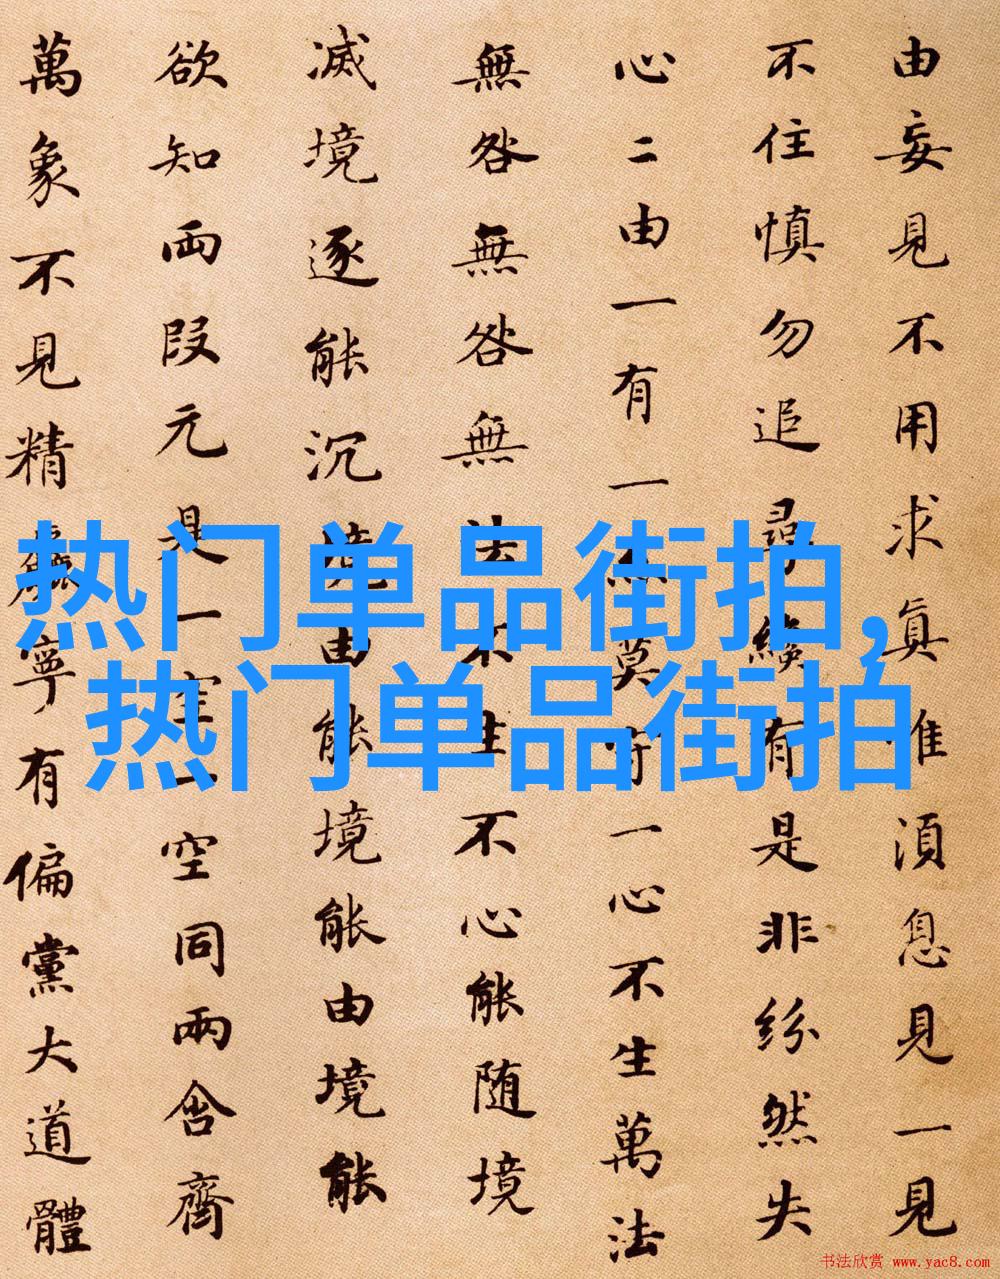 由妄見不用求真唯須息見一見
不住慎勿追尋纔有是非紛然失
心二由一有一亦莫守一心不生萬法
無咎無咎無法不生不心能随境
滅境逐能沉境由能境能由境能
欲知兩段元是一空一空同兩含齊
萬象不見精麁寧有偏黨大道體
热门单品街拍,
热门单品街拍
书法欣赏 www.yac8.com